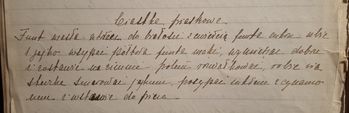 Ciastka proszkowe.
Funt masła utrzeć do białości ćwiercią funta cukru wbić
1 jajko wsypać półtora funta mąki, wymieszać dobrze
i zostawić na zimnie potem rozwałkować, robić
smarować jajkiem, posypać cukrem z cynamo-
nem i wstawić do pieca